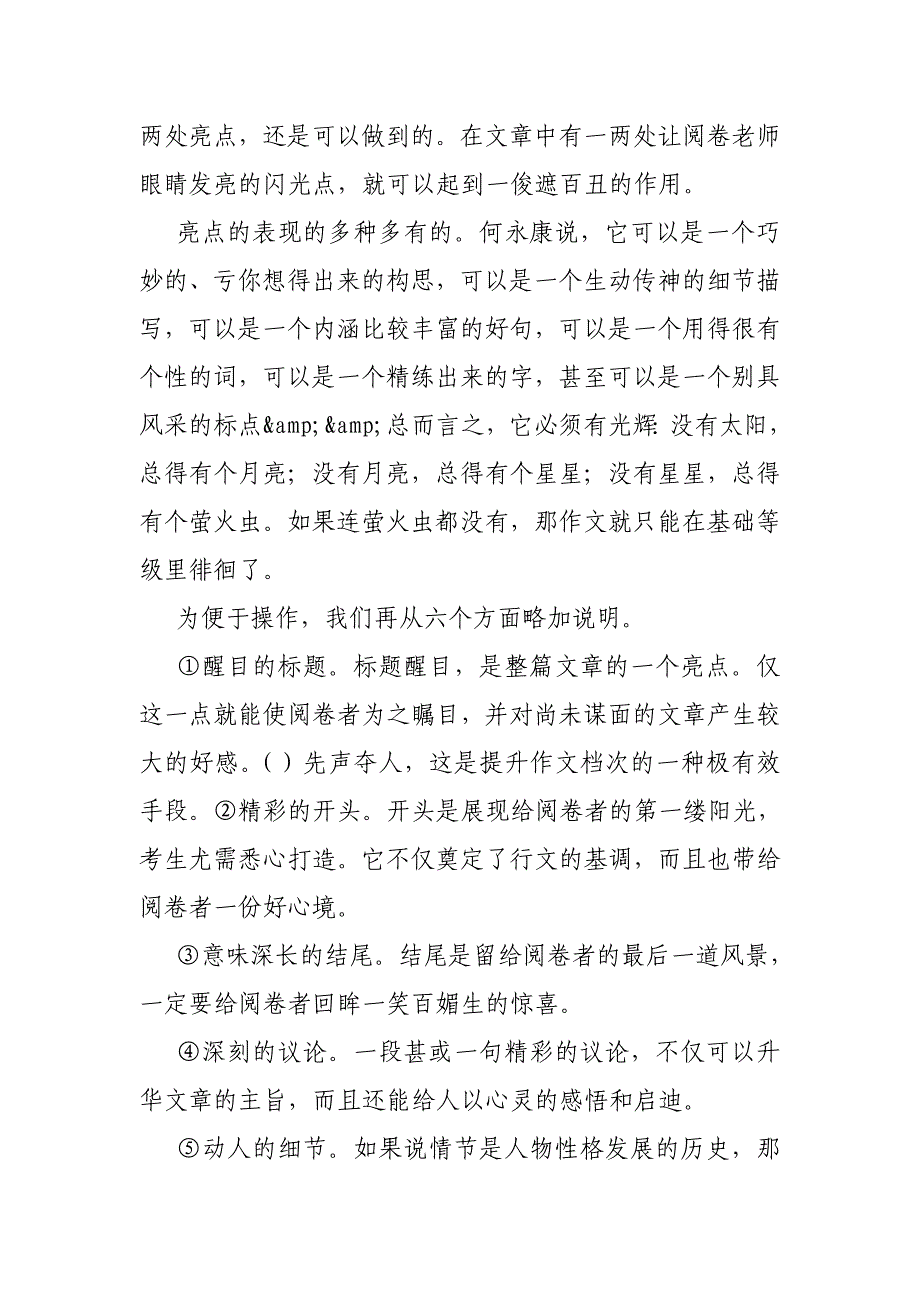 两处亮点，还是可以做到的。在文章中有一两处让阅卷老师
眼睛发亮的闪光点，就可以起到一俊遮百丑的作用。
亮点的表现的多种多有的。何永康说，它可以是一个巧
妙的、亏你想得出来的构思，可以是一个生动传神的细节描
写，可以是一个内涵比较丰富的好句，可以是一个用得很有
个性的词，可以是一个精练出来的字，甚至可以是一个别具
风采的标点&amp;&amp;总而言之，它必须有光辉：没有太阳，
总得有个月亮；没有月亮，总得有个星星；没有星星，总得
有个萤火虫。如果连萤火虫都没有，那作文就只能在基础等
级里徘徊了。
为便于操作，我们再从六个方面略加说明。
①醒目的标题。标题醒目，是整篇文章的一个亮点。仅
这一点就能使阅卷者为之瞩目，并对尚未谋面的文章产生较
大的好感。( )先声夺人，这是提升作文档次的一种极有效
手段。②精彩的开头。开头是展现给阅卷者的第一缕阳光，
考生尤需悉心打造。它不仅奠定了行文的基调，而且也带给
阅卷者一份好心境。
③意味深长的结尾。结尾是留给阅卷者的最后一道风景，
一定要给阅卷者回眸一笑百媚生的惊喜。
④深刻的议论。一段甚或一句精彩的议论，不仅可以升
华文章的主旨，而且还能给人以心灵的感悟和启迪。
⑤动人的细节。如果说情节是人物性格发展的历史，那